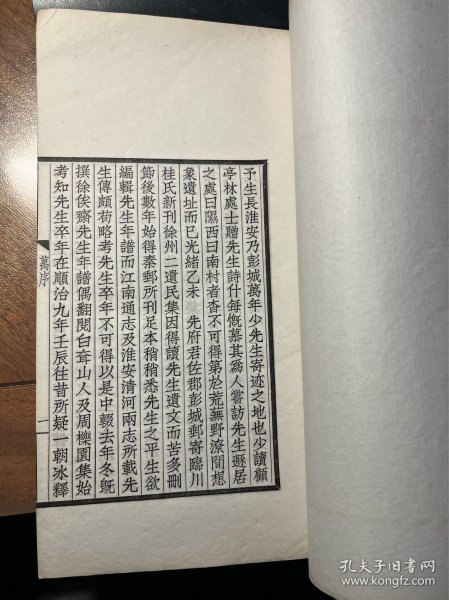 予生長淮安乃彭城萬年少先生寄迹之地也少讀顧
亭林處士贈先生詩什每慨慕其爲人嘗訪先生遯居
之處曰隰西曰南村者杳不可得第於荒蕪野潦間想
象遺址而已光緒乙未 先府君佐郡彭城郵寄臨川
桂氏新刊徐州二遺民集因得讀先生遺文而苦多刪
節後數年始得秦郵所刊足本稍稍悉先生之平生欲
編輯先生年譜而江南通志及淮安清河兩志所載先
生傳頗荷略考先生卒年不可得以是中輟去年冬旣
撰徐俟齋先生年譜偶翻閱白耷山人及周櫟園集始
考知先生卒年在順治九年壬辰往昔所疑一朝冰釋
萬序
一
孔夫子旧书网
www.kongfz.com